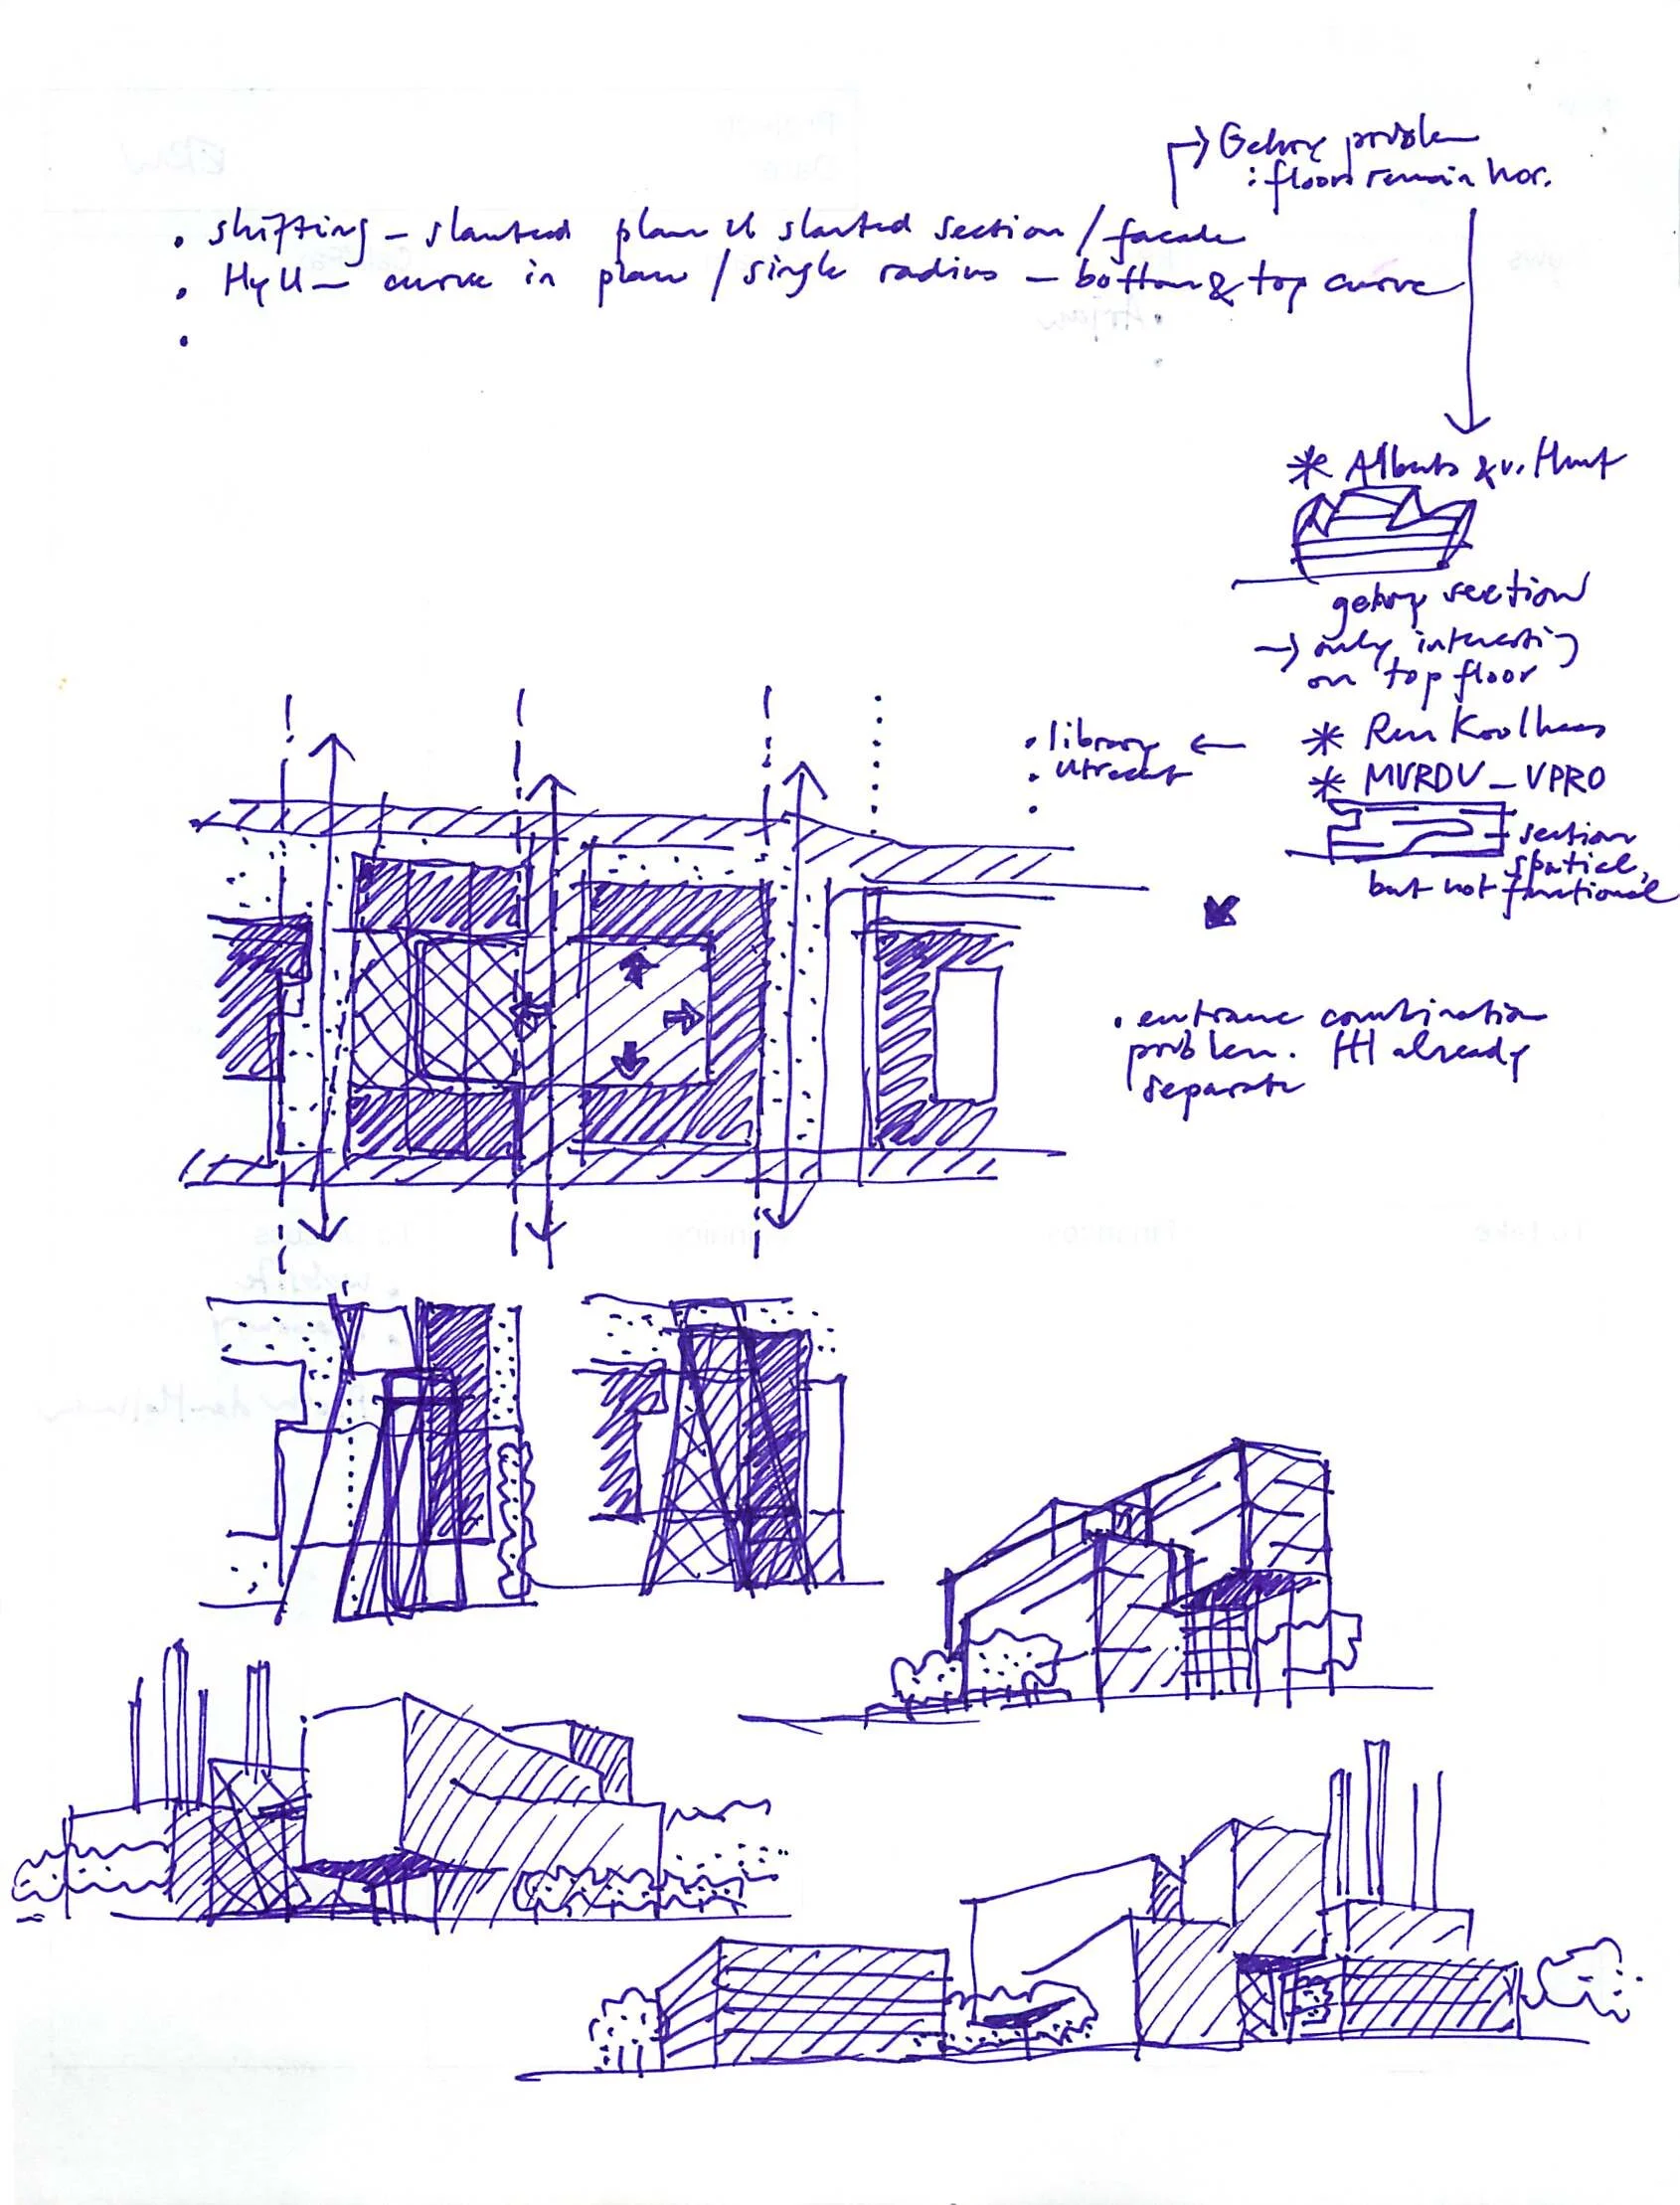 Gehry problem
: floors remain hor.
• shifting – slanted plan vs slanted section / facade
• – curve in plan / single radius – bottom & top curve
•
* Alberts & v. Huut
gehry section
→ only interesting
on top floor
* Rem Koolhaas
• library ←
• Utrecht
•
* MVRDV – VPRO
section
spatial,
but not functional
• entrance combination
problem. already
separate